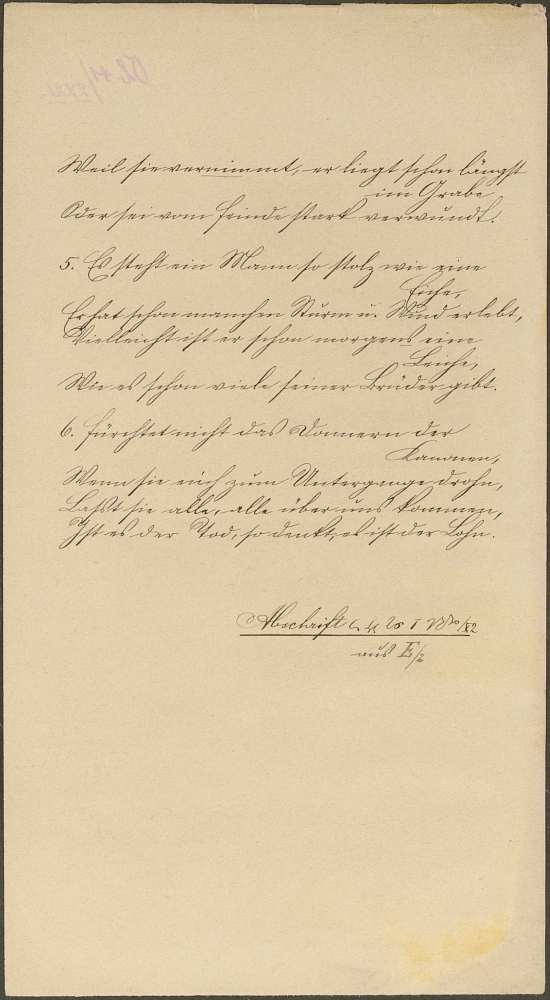 Weil sie vernimmt, er liegt schon längst
im Grabe
Oder sei vom Feinde stark verwundt.
5. Es steht ein Mann so stolz wie eine
Eiche,
Er hat schon manchen Sturm u. Wind erlebt,
Vielleicht ist er schon morgens eine
Leiche,
Wie es schon viele seiner Brüder gibt.
6. Fürchtet nicht das Donnern der
Kanonen,
Wenn sie euch zum Untergange drohn,
Laßt sie alle, alle über uns kommen,
Ist es der Tod, so denkt, es ist der Lohn.
Abschrift
aus E/2